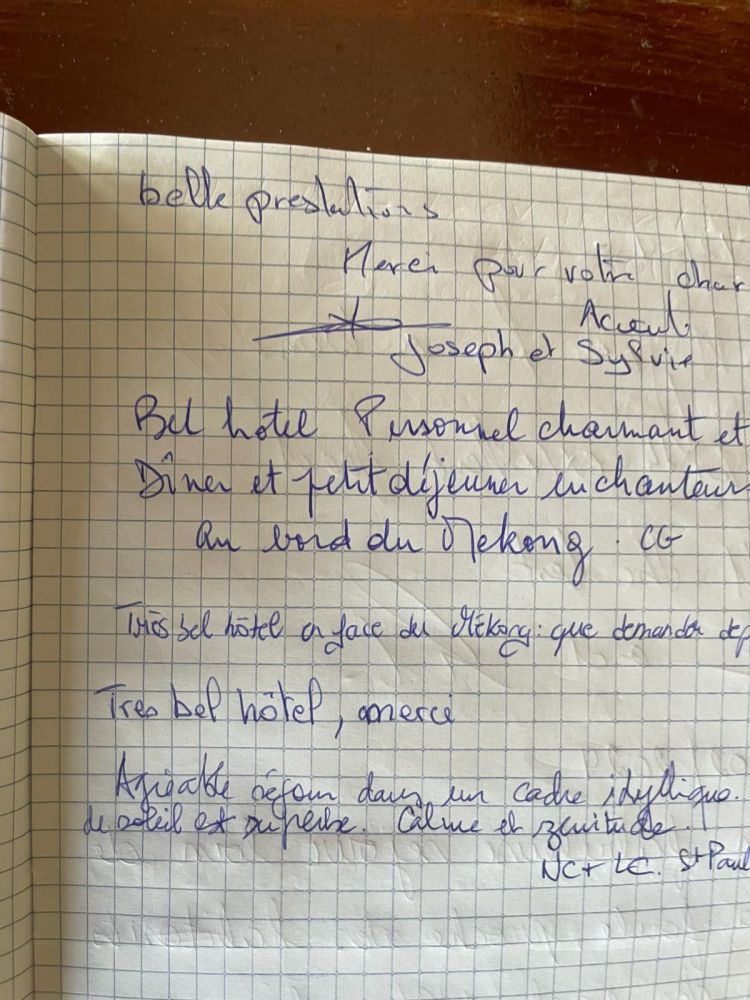 belle prestations
Merci pour votre char
Acueul.
Joseph et Sylvie
Bel hôtel Personnel charmant et
Dîner et petit déjeuner enchanteur
au bord du Mekong. CG
Très bel hôtel en face du Mékong: que demander de p
Tres bel hôtel, merci
Agréable séjour dans un cadre idyllique.
de soleil est superbe. Calme et zenitude.
NC + LC. St Paul